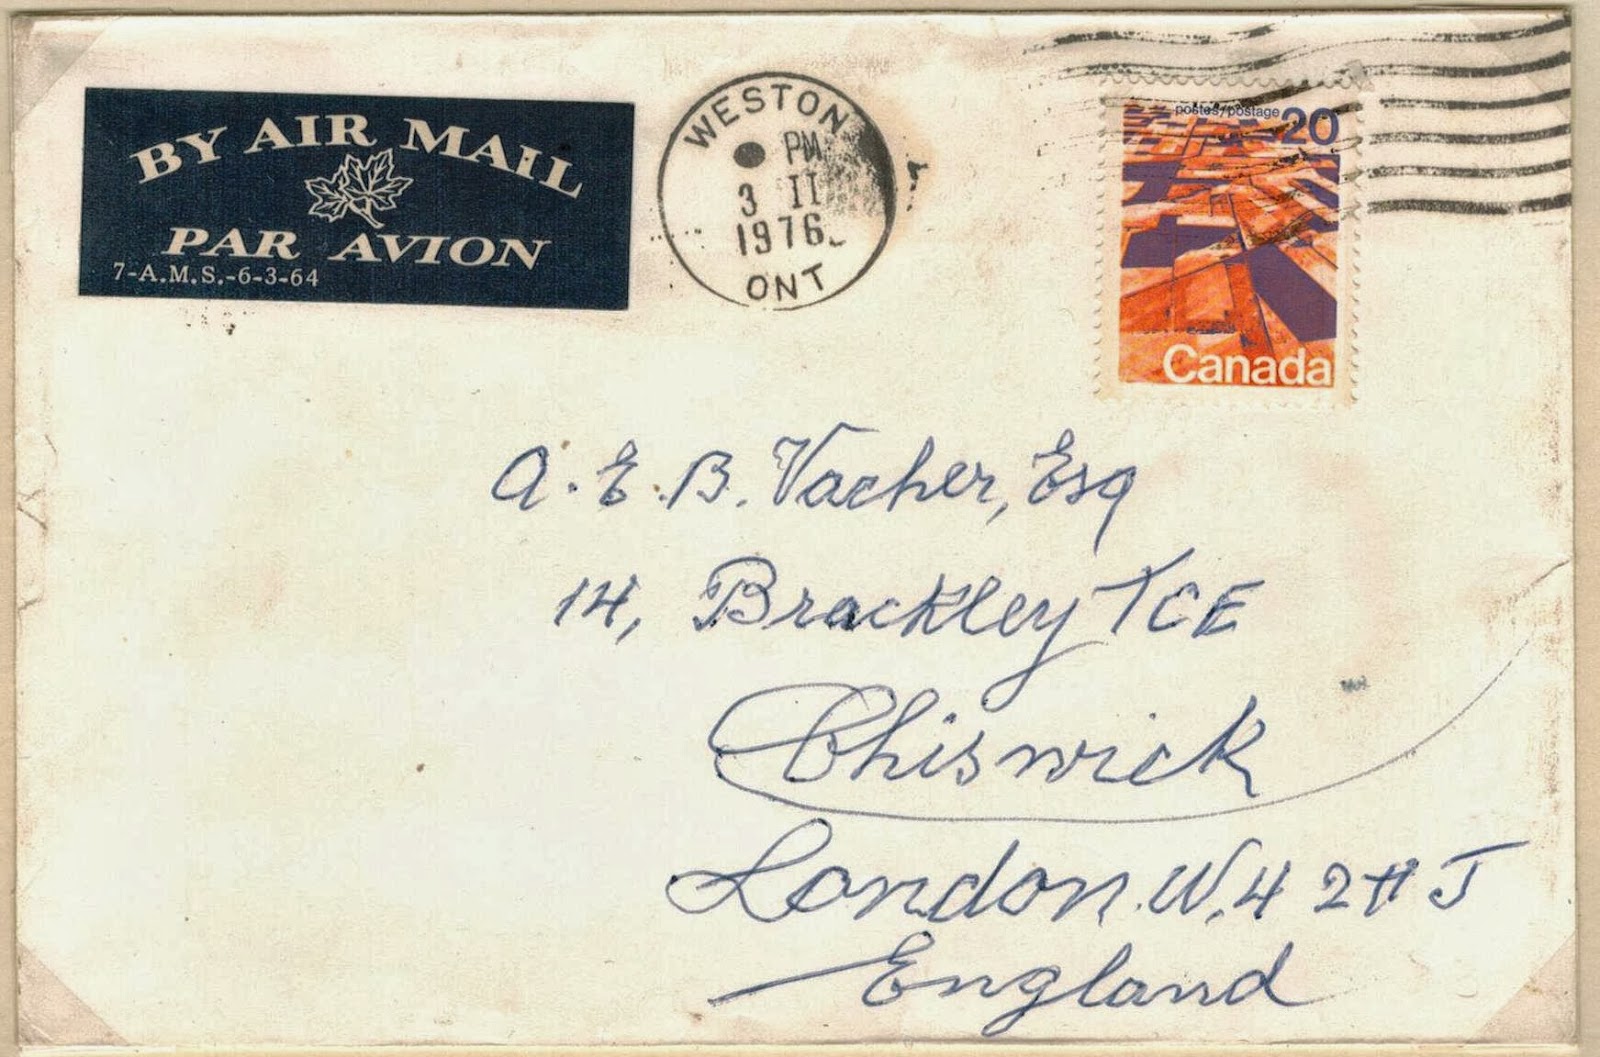 BY AIR MAIL
PAR AVION
7-A.M.S.-6-3-64
WESTON
PM
3 II
1976
ONT
postes/postage 20
Canada
A. E. B. Vacher, Esq
14, Brackley TCE
Chiswick
London. W.4 2HJ
England